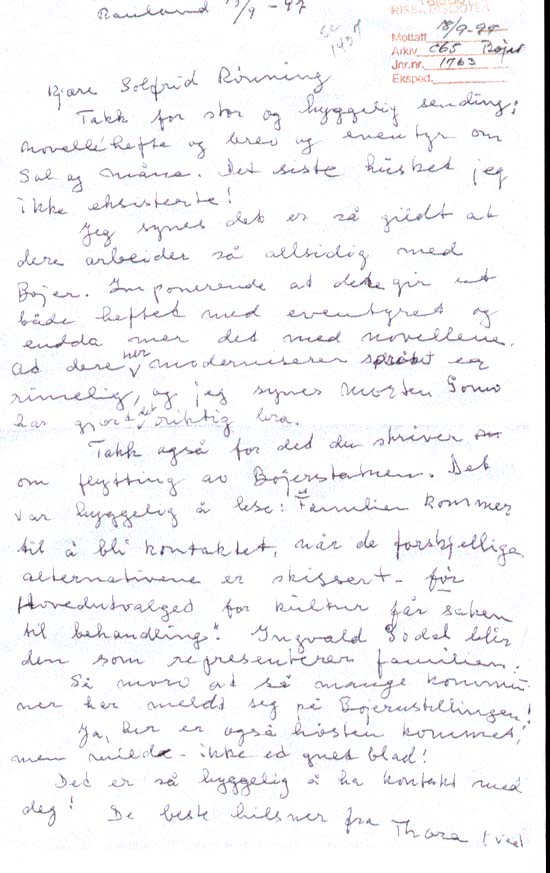 Rauland 13/9 - 97
RISSA
Mottatt 18/9-97
Arkiv C65 Bojer
Jnr.nr. 1763
Ekspod.
1437
Kjære Solfrid Rønning
Takk for stor og hyggelig sending;
novellehefte og brev og eventyr om
Sol og måne. Det siste husket jeg
ikke eksisterte!
Jeg synes det er så gildt at
dere arbeider så allsidig med
Bojer. Imponerende at dere gir ut
både heftet med eventyret og
endda mer det med novellene.
At dere her moderniserer språket er
rimelig, og jeg synes Morten Gomo
har gjort det riktig bra.
Takk også for det du skriver
om flytting av Bojerstatuen. Det
var hyggelig å lese: "Familien kommer
til å bli kontaktet, når de forskjellige
alternativene er skissert - før
Hovedutvalget for kultur får saken
til behandling." Ingvald Godal blir
den som representerer familien.
Så moro at så mange kommu-
ner har meldt seg på Bojerustillingen!
Ja, her er også høsten kommet,
men mild - ikke et gult blad!
Det er så hyggelig å ha kontakt med
deg! De beste hilsner fra Thora